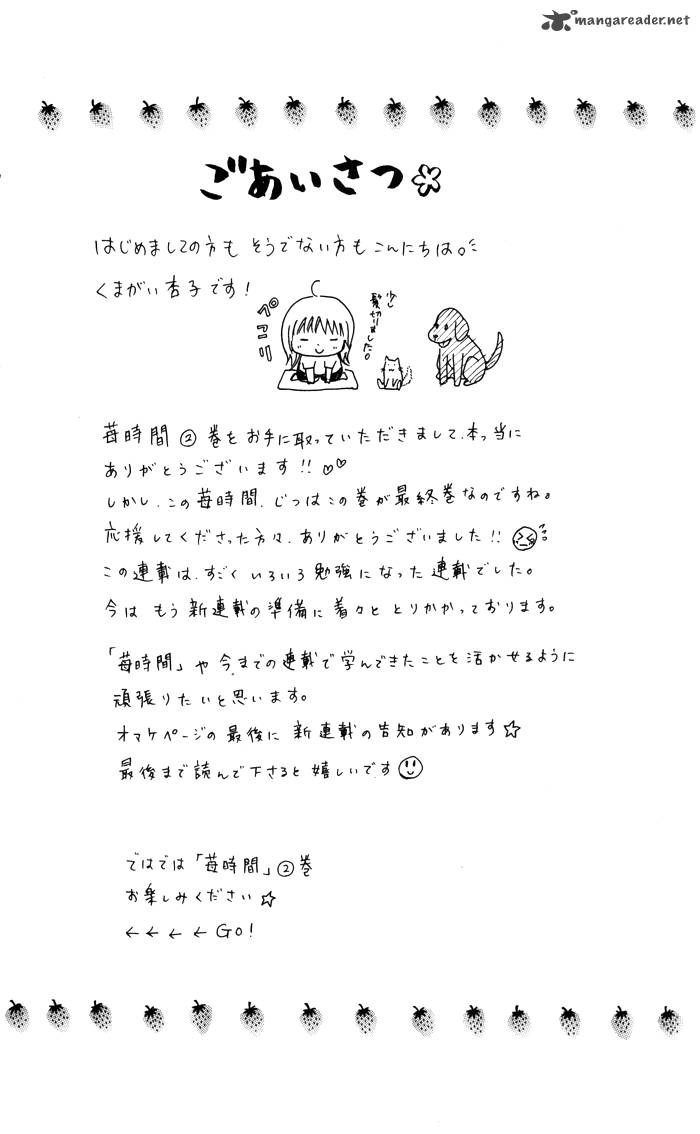 mangareader.net
ごあいさつ
はじめましての方も そうでない方も こんにちは。
くまがい杏子です!
ペコリ
少し
髪切りました。
苺時間②巻をお手に取っていただきまして、本っ当に
ありがとうございます!!♡♡
しかし、この苺時間、じつはこの巻が最終巻なのですね。
応援してくださった方々、ありがとうございました!!
この連載は、すごくいろいろ勉強になった連載でした。
今は もう新連載の準備に着々ととりかかっております。
「苺時間」や今までの連載で学んできたことを活かせるように
頑張りたいと思います。
オマケページの最後に 新連載の告知があります☆
最後まで読んで下さると嬉しいです
ではでは「苺時間」②巻
お楽しみください☆
←←←←GO!